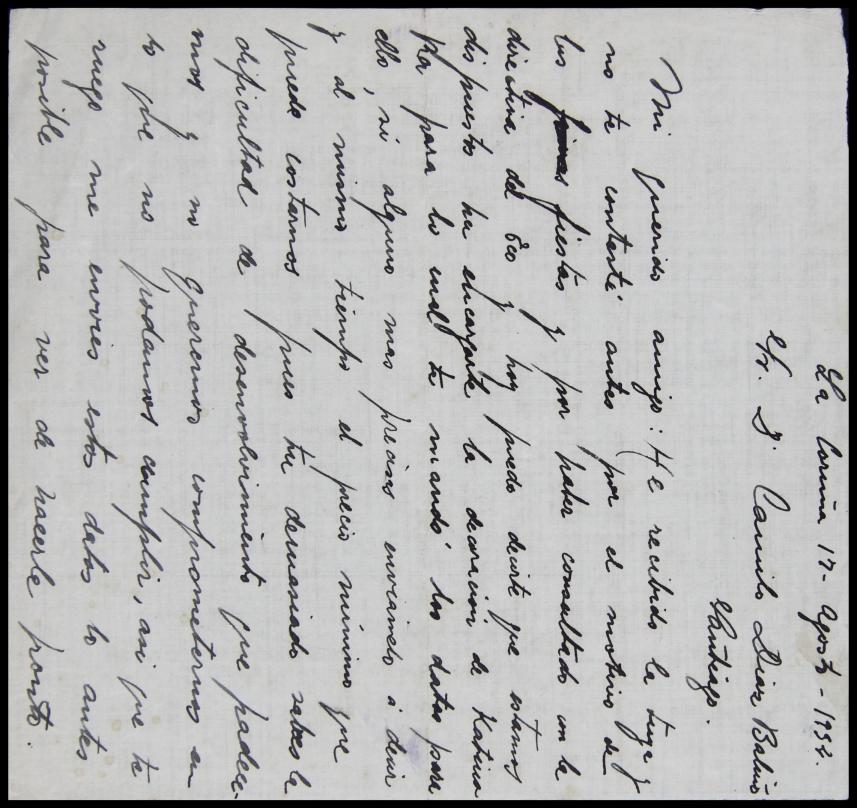 La Coruña 17 - Agosto - 1932.
Sr. D. Camilo Diaz Baliño
Santiago.
Mi querido amigo: He recibido la tuya y
no te contesté antes por el motivo de
las fiestas y por haber consultado con la
directiva del Eco y hoy puedo decirte que estamos
dispuestos ha encargarte la decoración de Katius
ka para lo cual te mando los datos para
ello, si alguno mas precisas enviando á decir
y al mismo tiempo el precio mínimo que
puede costarnos pues tu demasiado sabes la
dificultad de desenvolvimiento que padece-
mos y no queremos comprometernos en
lo que no podamos cumplir, asi que te
ruego me envies estos datos lo antes
posible para ver de hacerle pronto.